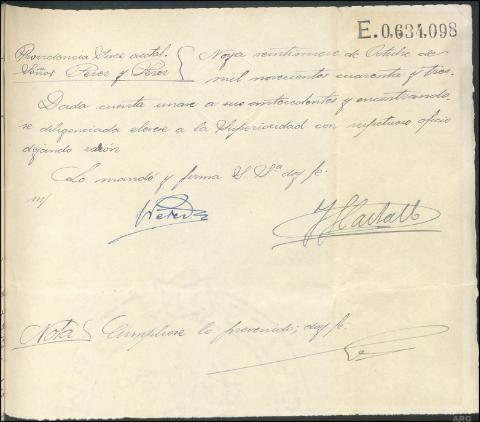 E.0.634,098
Providencia Juez acctal.
Señor Pérez y Pérez
Noya veintinueve de Octubre de
mil novecientos cuarenta y tres.
Dada cuenta unase a sus antecedentes y encontrando-
se diligenciada elevese a la Superioridad con respetuoso oficio
dejando razón
Lo mandó y firma S. Sª doy fe.
m/
Nota Cumplióse lo prevenido; doy fe.
ARG